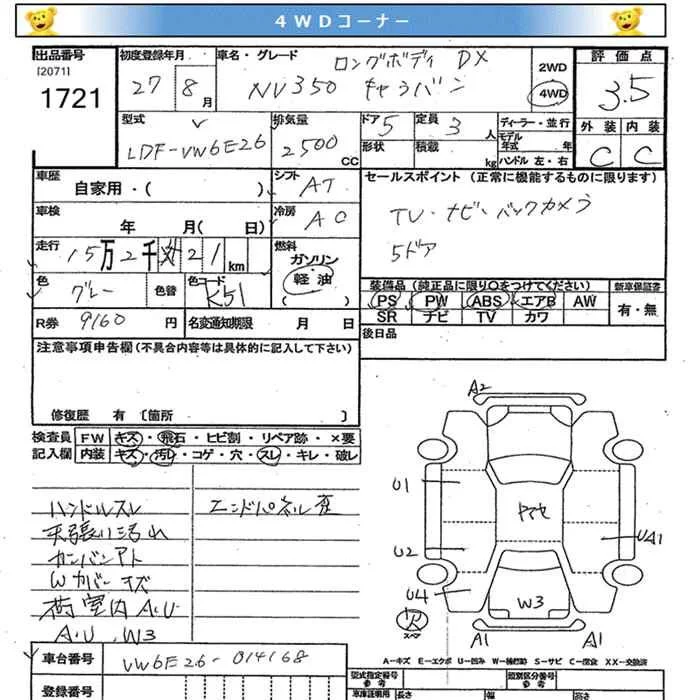 4WDコーナー
出品番号 初度登録年月 車名・グレード ロングボディ DX 評価点
[2071] 2WD
1721 27 8月 NV350 キャラバン 4WD 3.5
型式 排気量 ドア 5 定員 3人 ディーラー・並行 外装 内装
LDF-VW6E26 2500CC 形状 積載 kg モデル年式 年 C C
ハンドル 左・右
車歴 自家用・( ) シフト AT セールスポイント (正常に機能するものに限ります)
車検 年 月( 日) 冷房 AC TV・ナビ・バックカメラ
走行 15万2千 21 km 燃料 ガソリン 軽油 ( ) 5ドア
色 グレー 色替 色コード K51 装備品 (純正品に限り○をつけてください) 新車保証書
PS PW ABS エアB AW 有・無
R券 9160円 名変通知期限 月 日 SR ナビ TV カワ
後日品
注意事項申告欄(不具合内容等は具体的に記入して下さい)
修復歴 有 〔箇所 〕
検査員 FW キズ・飛石・ヒビ割・リペア跡・×要
記入欄 内装 キズ・汚レ・コゲ・穴・スレ・キレ・破レ
A2
ハンドルスレ エンドパネル歪
天張り汚れ
カンバンアト
Wカバーキズ
荷室内 A.U
A.U.W3
U1
U2
UA1
U4
W3
A1 A1
車台番号 VW6E26-014168
A-キズ E-エクボ U-凹み W-補修跡 S-サビ C-腐食 XX-交換済
登録番号
型式指定番号 参考 類別区分番号 参考
車庫証明用 長さ 幅 高さ